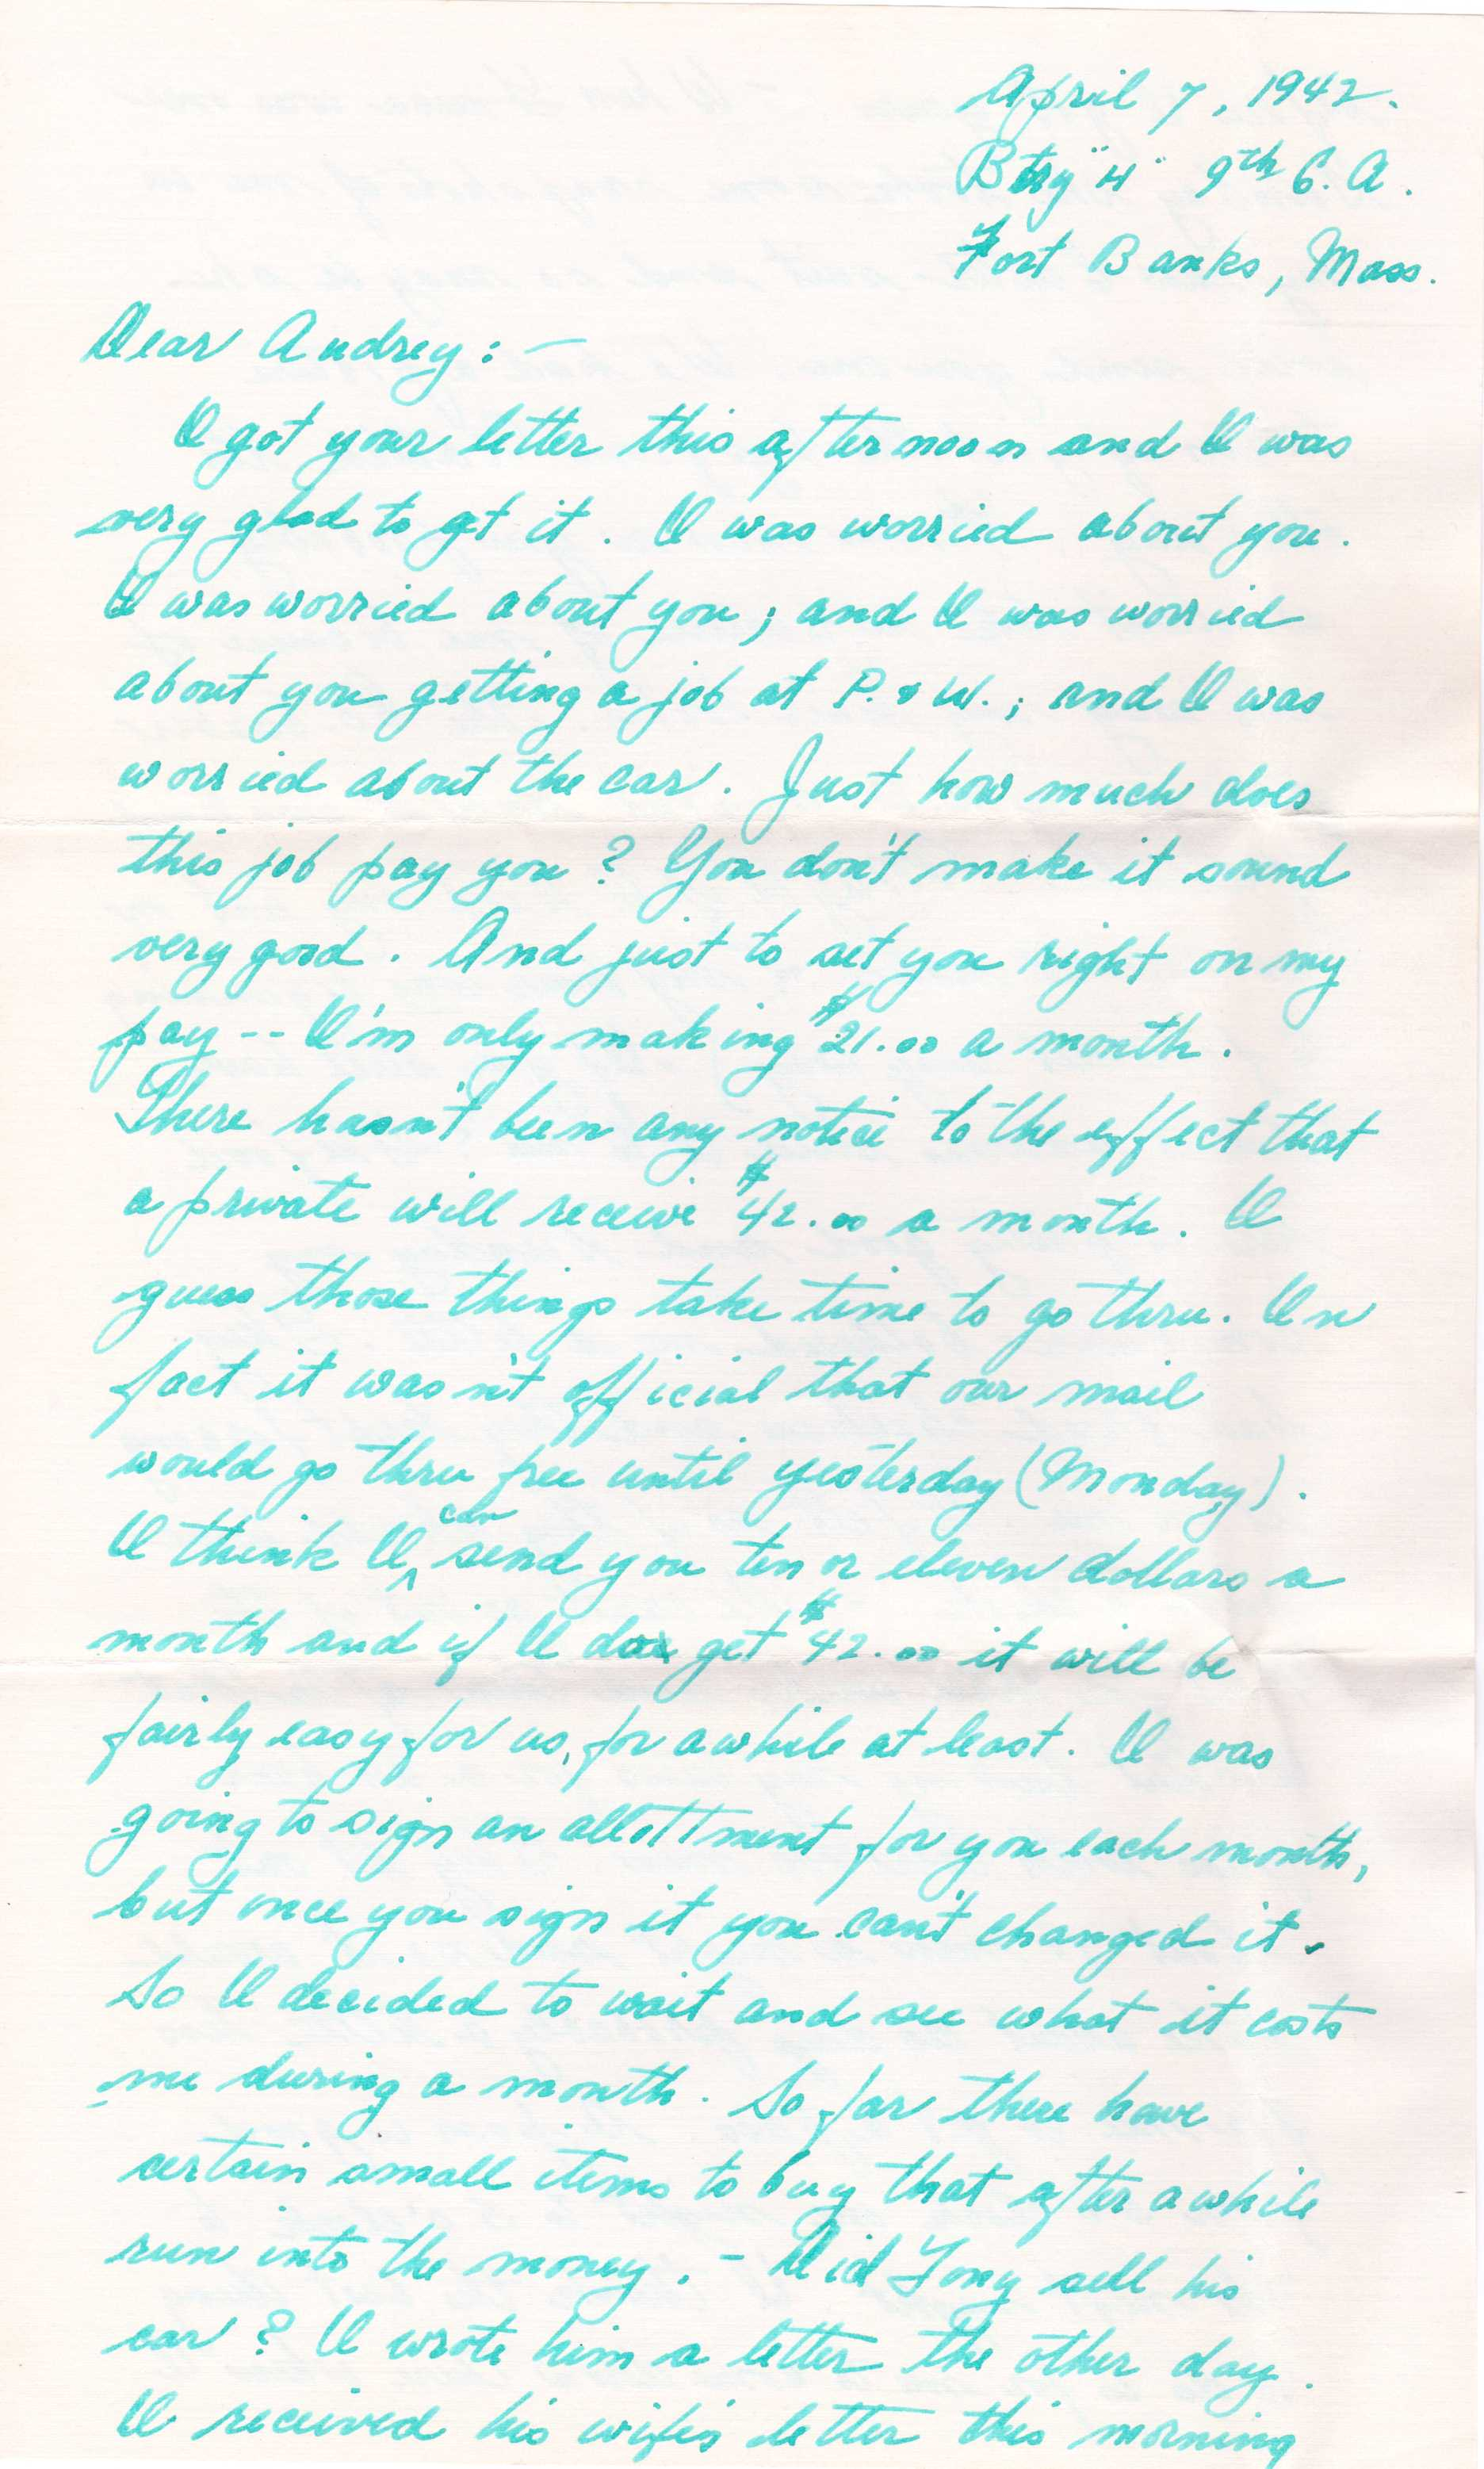 April 7, 1942.
Btry "H" 9th C. A.
Fort Banks, Mass.
Dear Audrey: —
I got your letter this afternoon and I was
very glad to get it. I was worried about you.
I was worried about you; and I was worried
about you getting a job at P. & W.; and I was
worried about the car. Just how much does
this job pay you? You don't make it sound
very good. And just to set you right on my
pay -- I'm only making $21.00 a month.
There hasn't been any notice to the effect that
a private will receive $42.00 a month. I
guess those things take time to go thru. In
fact it wasn't official that our mail
would go thru free until yesterday (Monday).
I think I can send you ten or eleven dollars a
month and if I do get $42.00 it will be
fairly easy for us, for awhile at least. I was
going to sign an allottment for you each month,
but once you sign it you can't changed it.
So I decided to wait and see what it costs
me during a month. So far there have
certain small items to buy that after awhile
run into the money. - Did Tony sell his
car? I wrote him a letter the other day.
I received his wife's letter this morning